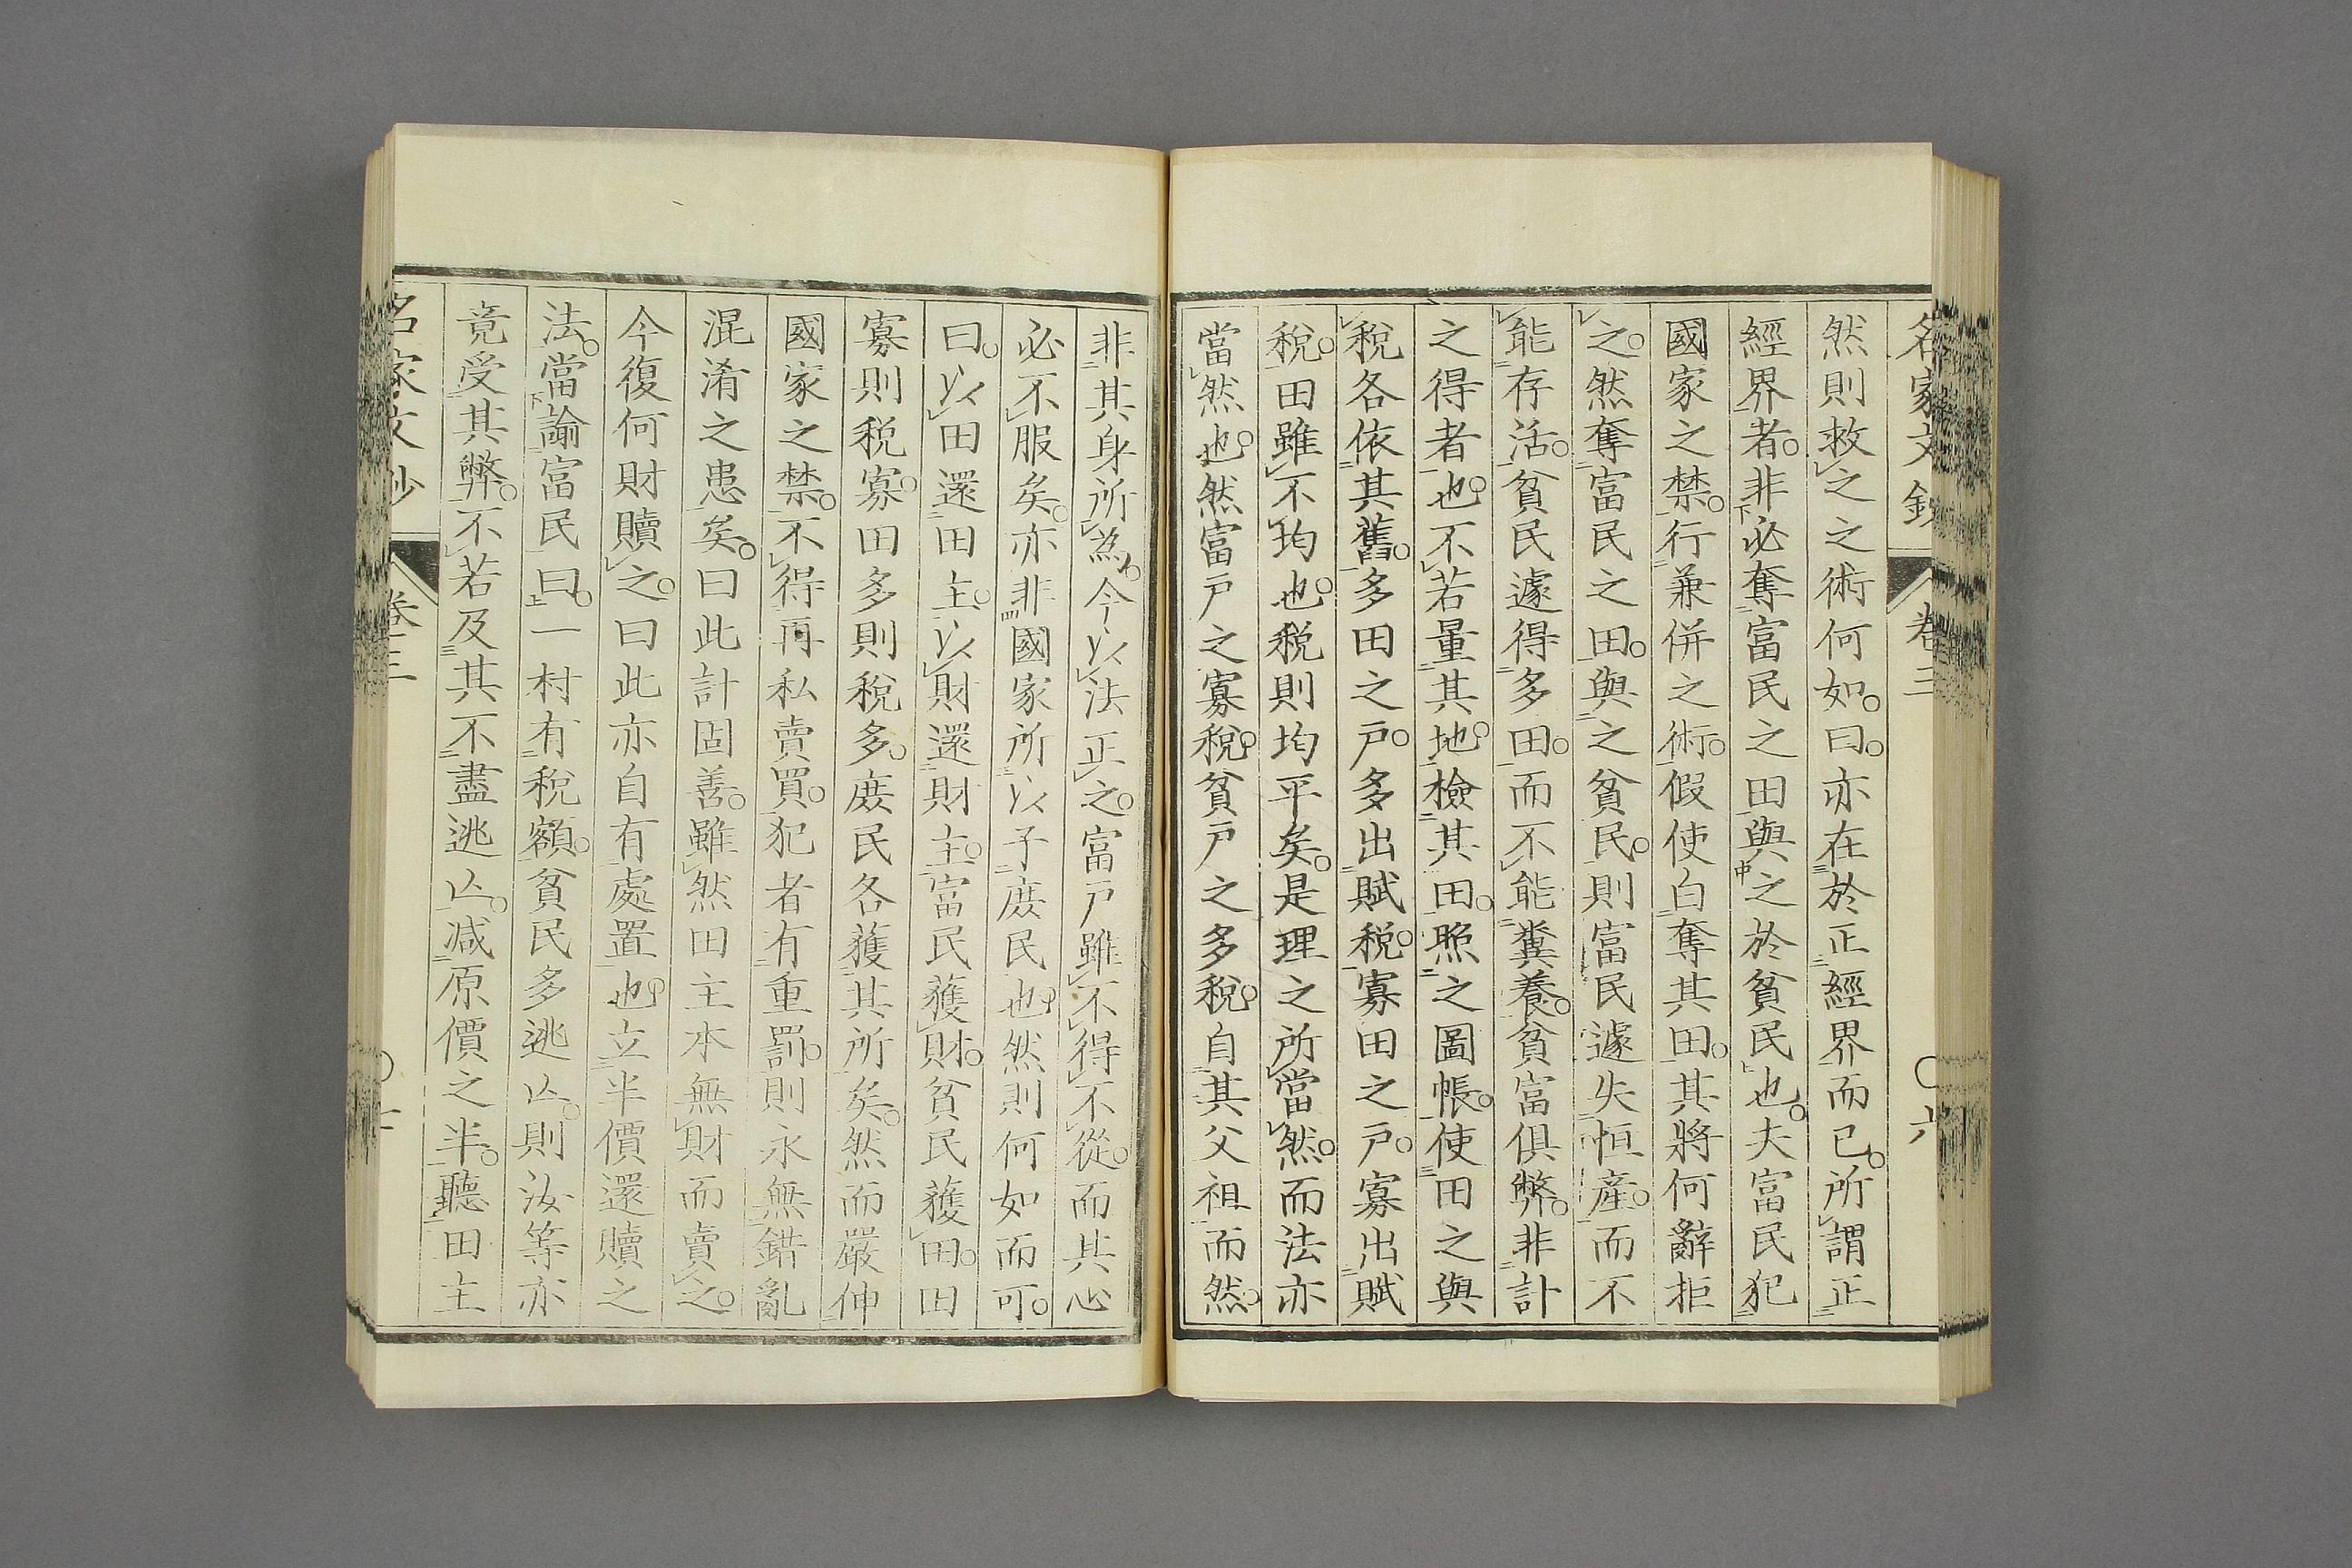 名家文鈔 卷三 〇六
然則救之之術何如。曰。亦在於正經界而已。所謂正
經界者。非必奪富民之田與之於貧民也。夫富民犯
國家之禁。行兼併之術。假使白奪其田。其將何辭拒
之。然奪富民之田。與之貧民。則富民遽失恒產。而不
能存活。貧民遽得多田。而不能糞養。貧富俱弊。非計
之得者也。不若量其地。檢其田。照之圖帳。使田之與
稅各依其舊。多田之戶。多出賦稅。寡田之戶。寡出賦
稅。田雖不均也。稅則均平矣。是理之所當然。而法亦
當然也。然富戶之寡稅。貧戶之多稅。自其父祖而然。
非其身所為。今以法正之。富戶雖不得不從。而其心
必不服矣。亦非國家所以子庶民也。然則何如而可。
曰。以田還田主。以財還財主。富民獲財。貧民獲田。田
寡則稅寡。田多則稅多。庶民各獲其所矣。然而嚴伸
國家之禁。不得再私賣買。犯者有重罰。則永無錯亂
混淆之患矣。曰此計固善。雖然田主本無財而賣之。
今復何財贖之。曰此亦自有處置也。立半價還贖之
法。當諭富民曰。一村有稅額。貧民多逃亾。則汝等亦
竟受其弊。不若及其不盡逃亾。減原價之半。聽田主
名家文鈔 卷三